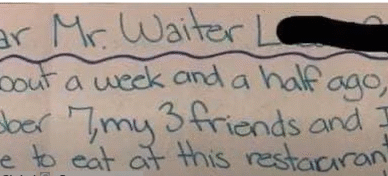 ar Mr. Waiter L
bout a week and a half ago,
ber 7, my 3 friends and I
e to eat at this restaurant